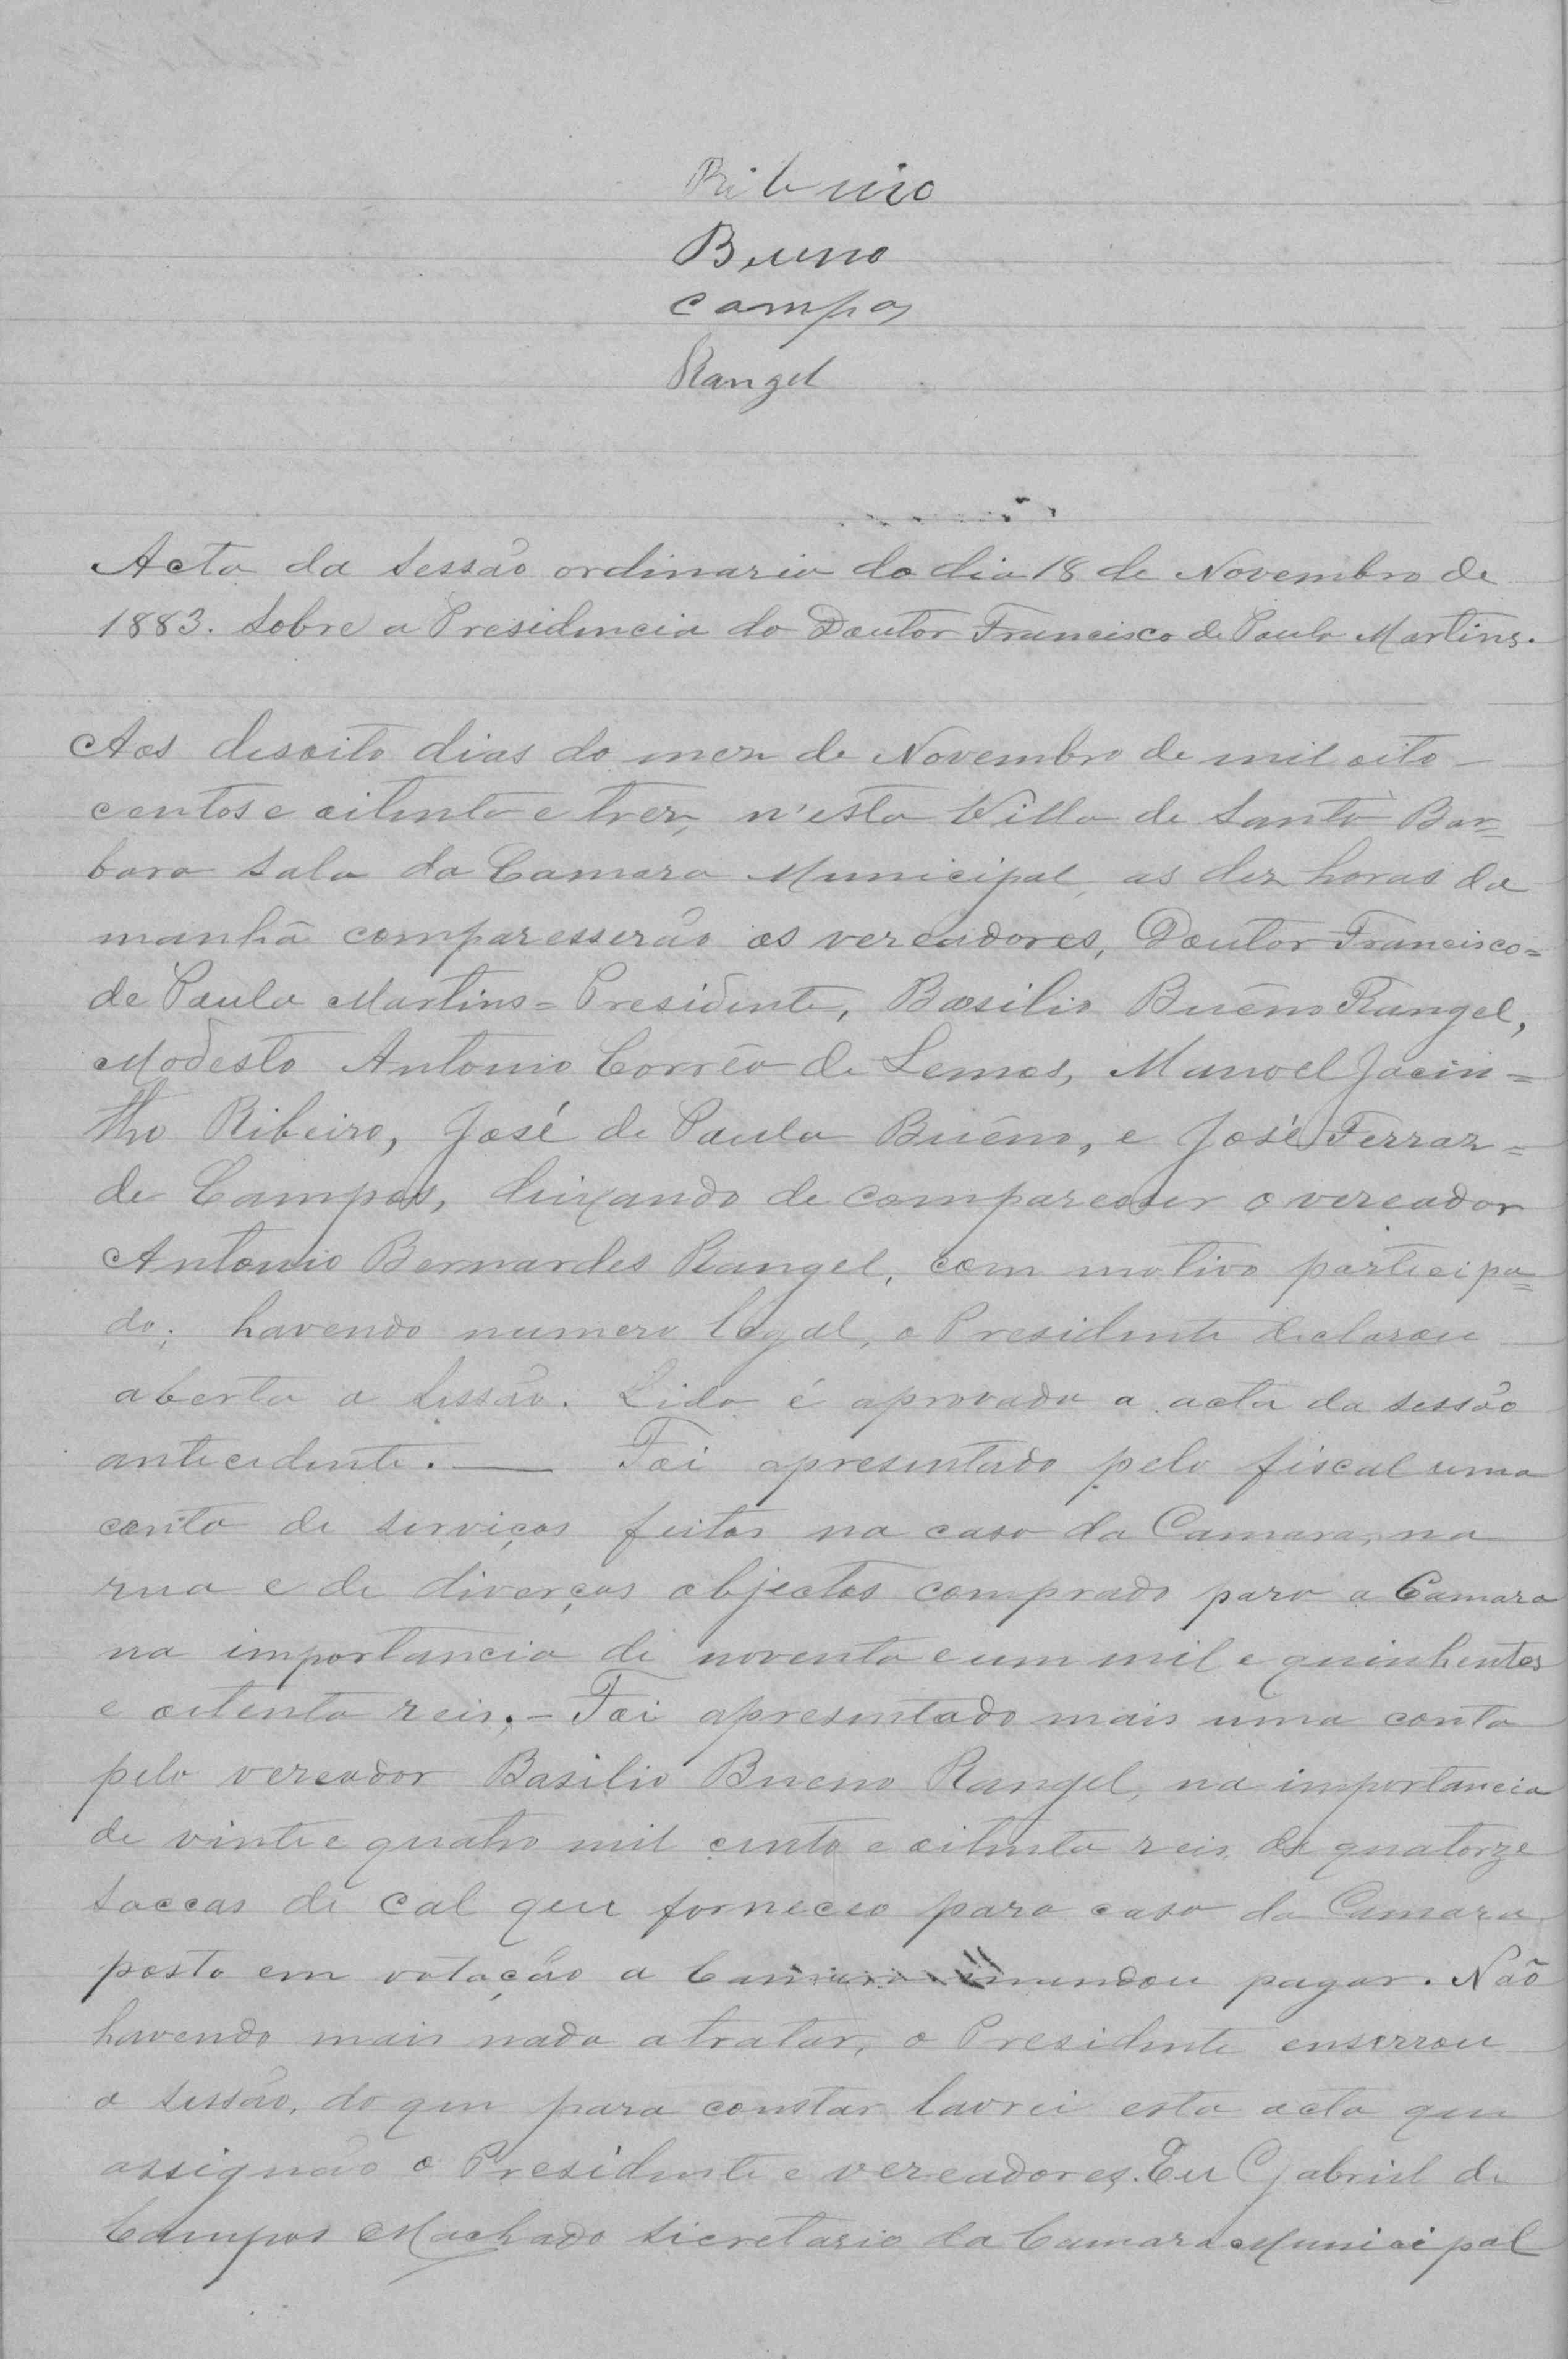 Ribeiro
Bueno
Campos
Rangel
Acta da sessão ordinaria do dia 18 de Novembro de
1883. Sobre a Presidencia do Doutor Francisco de Paula Martins.
Aos desoito dias do mez de Novembro de mil oito-
centos e oitenta e trez, n'esta Villa de Santa Bar=
bara sala da Camara Municipal, as dez horas da
manhã comparesserão os vereadores, Doutor Francisco=
de Paula Martins=Presidente, Basilio Buêno Rangel,
Modesto Antonio Corrêa de Lemos, Manoel Jacin=
tho Ribeiro, José de Paula Buêno, e José Ferraz=
de Campos, deixando de comparesser o vereador
Antonio Bernardes Rangel, com motivo participa=
do; havendo numero legal, o Presidente declarou
aberta a sessão. Lida é aprovada a acta da sessão
antecedente. — Foi apresentado pelo fiscal uma
conta de serviços feitos na casa da Camara, na
rua e de diverços objectos comprado para a Camara
na importancia de noventa e um mil e quinhentos
e oitenta reis. - Foi apresentado mais uma conta
pelo vereador Basilio Bueno Rangel, na importancia
de vinte e quatro mil cento e oitenta reis, de quatorze
saccas de cal que forneceo para casa da Camara,
posto em votação a Camara mandou pagar. Não
havendo mais nada a tratar, o Presidente enserrou
a sessão, do que para constar lavrei esta acta que
assignão o Presidente e vereadores. Eu Gabriel de
Campos Machado secretario da Camara Municipal